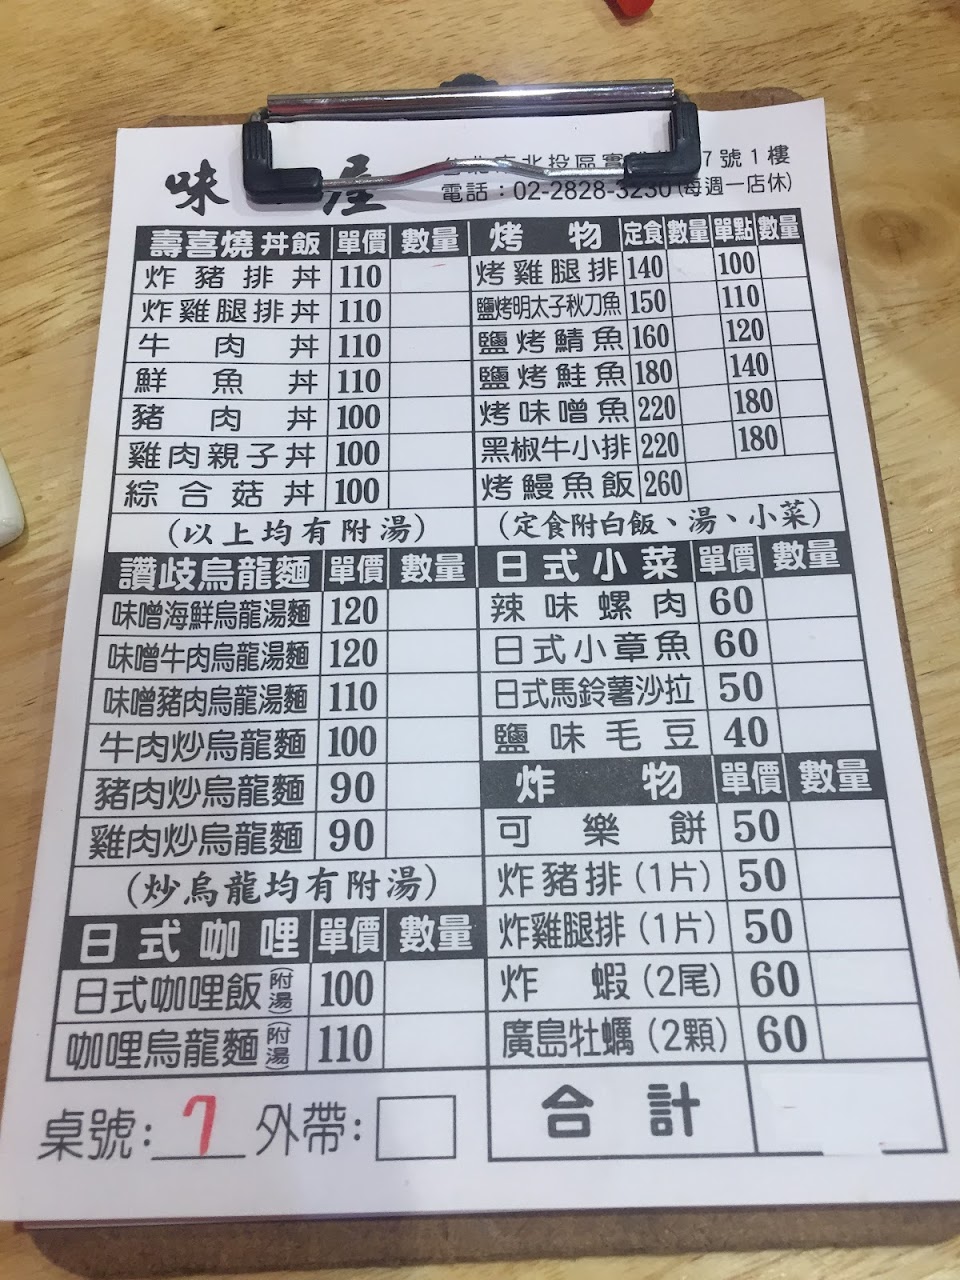 味 屋
北投區 7號1樓
電話：02-2828-3230(每週一店休)
壽喜燒丼飯 單價 數量
炸豬排丼 110
炸雞腿排丼 110
牛肉丼 110
鮮魚丼 110
豬肉丼 100
雞肉親子丼 100
綜合菇丼 100
(以上均有附湯)
讚岐烏龍麵 單價 數量
味噌海鮮烏龍湯麵 120
味噌牛肉烏龍湯麵 120
味噌豬肉烏龍湯麵 110
牛肉炒烏龍麵 100
豬肉炒烏龍麵 90
雞肉炒烏龍麵 90
(炒烏龍均有附湯)
日式咖哩 單價 數量
日式咖哩飯(附湯) 100
咖哩烏龍麵(附湯) 110
烤物 定食 數量 單點 數量
烤雞腿排 140 100
鹽烤明太子秋刀魚 150 110
鹽烤鯖魚 160 120
鹽烤鮭魚 180 140
烤味噌魚 220 180
黑椒牛小排 220 180
烤鰻魚飯 260
(定食附白飯、湯、小菜)
日式小菜 單價 數量
辣味螺肉 60
日式小章魚 60
日式馬鈴薯沙拉 50
鹽味毛豆 40
炸物 單價 數量
可樂餅 50
炸豬排(1片) 50
炸雞腿排(1片) 50
炸蝦(2尾) 60
廣島牡蠣(2顆) 60
合計
桌號：7 外帶：